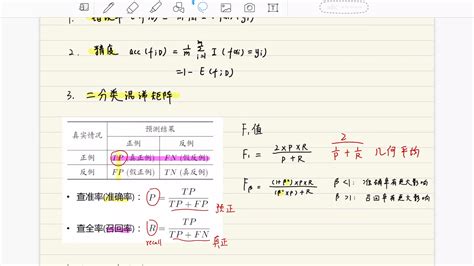 1. 错误率 E(f;D) =
2. 精度 acc(f;D) = 1/m Σ I(f(xi)=yi)
= 1- E(f;D)
3. 二分类混淆矩阵
真实情况 预测结果
正例 反例
正例 TP (真正例) FN (假反例)
反例 FP (假正例) TN (真反例)
• 查准率(准确率): P = TP / TP + FP 预正
• 查全率(召回率): R = TP / TP + FN 真正
recall
F₁ 值
F₁ = 2×P×R / P+R 2 / 1/P + 1/R 几何平均
Fβ = (1+β²)×P×R / (β²×P)+R β<1: 准确率有更大影响
β>1: 召回率有更大影响